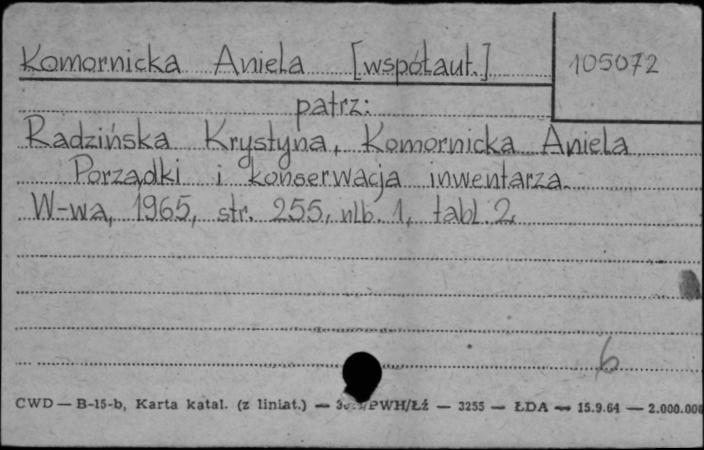 Komornicka Aniela [współaut.]
105072
patrz:
Radzińska Krystyna, Komornicka Aniela
Porządki i konserwacja inwentarza.
W-wa, 1965, str. 255, nlb. 1, tabl. 2,
6
CWD — B-15-b, Karta katal. (z liniat.) — PWH/Łź — 3255 — ŁDA — 15.9.64 — 2.000.000